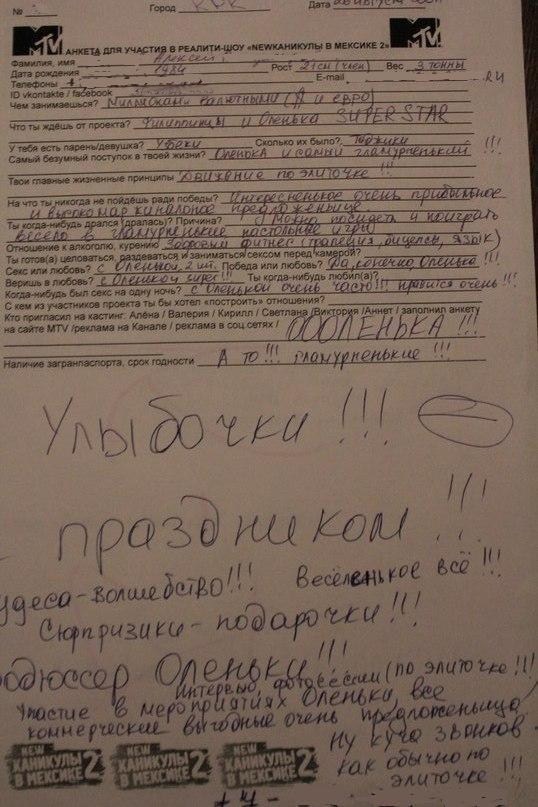 № Город КДК Дата
MTV АНКЕТА ДЛЯ УЧАСТИЯ В РЕАЛИТИ-ШОУ «NEWКАНИКУЛЫ В МЕКСИКЕ 2» MTV
Фамилия, имя Алексей
Дата рождения 1984 Рост 21см (член) Вес 3 тонны
Телефоны E-mail .RU
ID vkontakte / facebook
Чем занимаешься? Мильярдами валютными ( и евро)
Что ты ждёшь от проекта? Филиппинцы и Оленька SUPER STAR
У тебя есть парень/девушка? Узбеки Сколько их было? Таджики
Самый безумный поступок в твоей жизни? Оленька и самый гламурненький !!!
Твои главные жизненные принципы Движение по элиточке !!!
На что ты никогда не пойдёшь ради победы? Интересненькое очень прибыльное
и высоко предложеньище
Ты когда-нибудь дрался (дралась)? Причина? Можно посидеть и поиграть
весело в гламурненькие настольные игры
Отношение к алкоголю, курению Здоровый фитнес (трапеция, бицепсы, язык)
Ты готов(а) целоваться, раздеваться и заниматься сексом перед камерой?
Секс или любовь? с Оленькой, 2 шт. Победа или любовь? Да, конечно, Оленька !!!
Веришь в любовь? с Оленькой Ты когда-нибудь любил(а)?
Когда-нибудь был секс на одну ночь? с Оленькой очень часто!!! нравится очень!!!
С кем из участников проекта ты бы хотел «построить» отношения?
Кто пригласил на кастинг: Алёна / Валерия / Кирилл / Светлана /Виктория /Аннет / заполнил анкету
на сайте MTV /реклама на Канале / реклама в соц.сетях / ОООЛЕНЬКА !!!
Наличие загранпаспорта, срок годности А то!!! гламурненькие !!!
Улыбочки !!!
праздником !!!
удеса-волшебство!!! Весёленькое всё !!!
Сюрпризики - подарочки !!!
одюссер Оленьки !!!
Интервью, фотосессии (по элиточке !!!
Участие в мероприятиях Оленьки, все
коммерческие выгодные очень предложеньица
Ну куча звонков
как обычно по
элиточке !!!
NEW КАНИКУЛЫ В МЕКСИКЕ 2 NEW КАНИКУЛЫ В МЕКСИКЕ 2 NEW КАНИКУЛЫ В МЕКСИКЕ 2